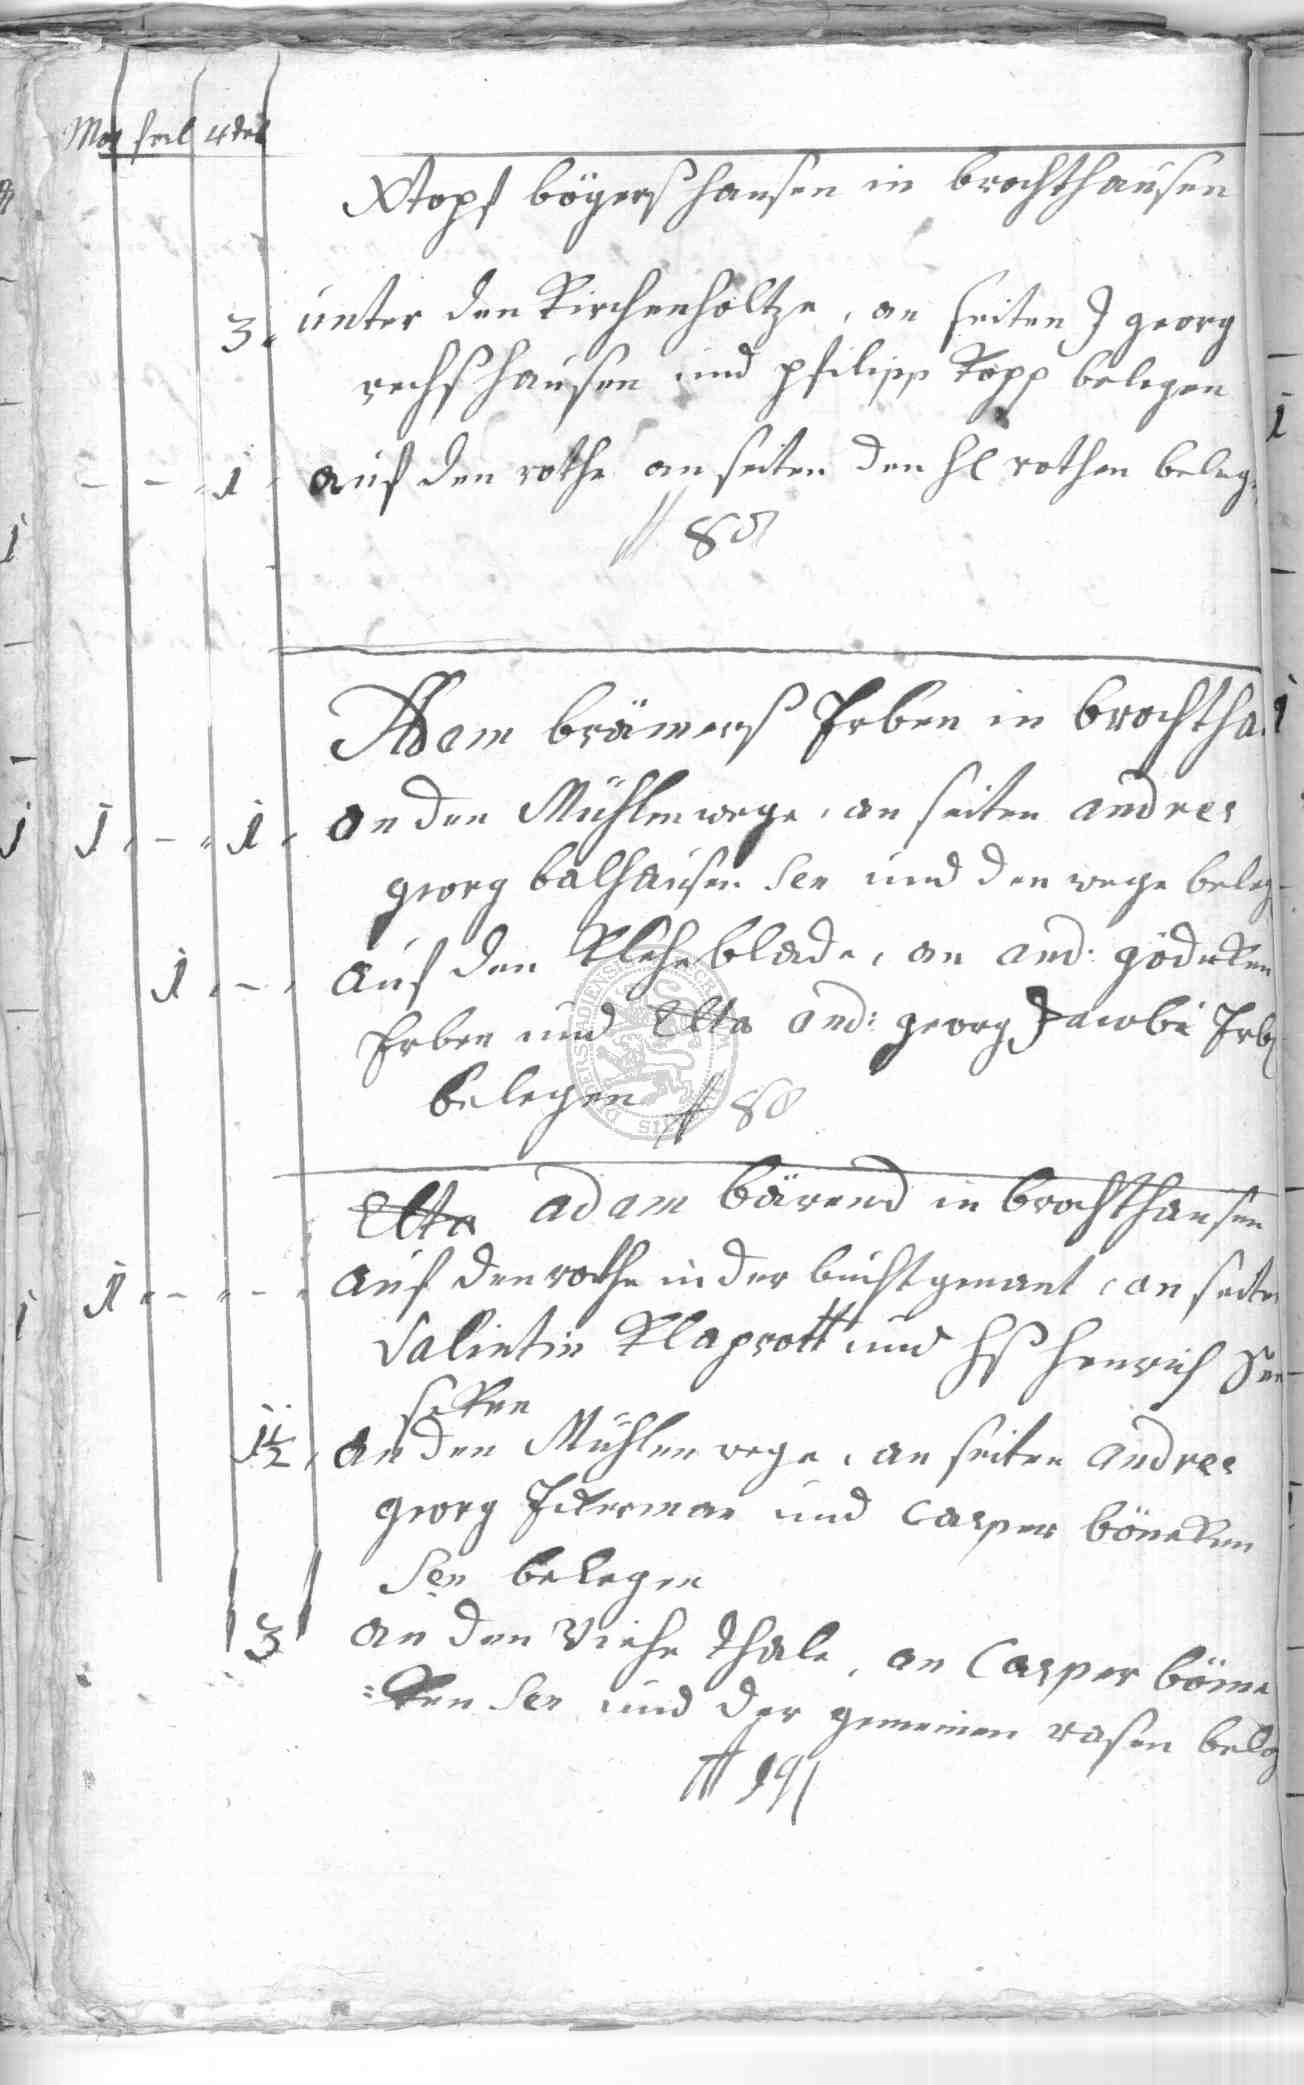 Mor. ferl 4del
Xtopf bögershausen in brochthausen
3. unter den Kirchenholtze, an seiten J georg
rechshausen und philipp Kopp belegen
- - 1 auf den rothe an seiten den hl rothen beleg
# 80
Adam brämers Erben in brochtha
1 - 1 an den Mühlenwege, an seiten andres
georg balhausen Sen und den wege beleg
1 - auf den Kleheblade, an and: gödeken
Erben und Elta and: georg Jacobi Erb
belegen # 80
Elta adam bärend in brochthausen
1 - - auf den rothe in der bucht genant, an seite
Valintin Klaprott und hs henrich
1 1/2 an den Mühlen wege, an seiten andres
georg Ickerman und Casper böneken
Sen belegen
3 an den Viehe thale, an Casper böne
=ken Sen und der gemeinen rasen beleg
# 191